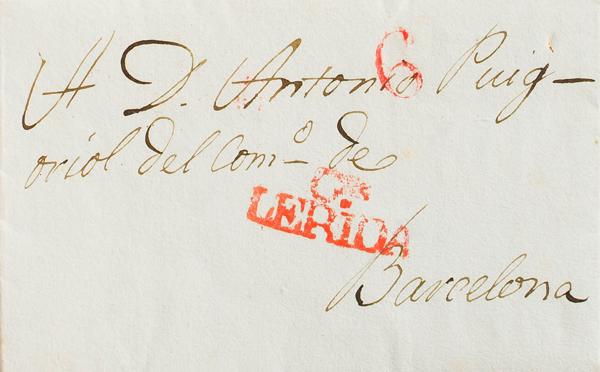 A D. Antonio Puig-
oriol del Com.º de
6
LERIDA
Barcelona